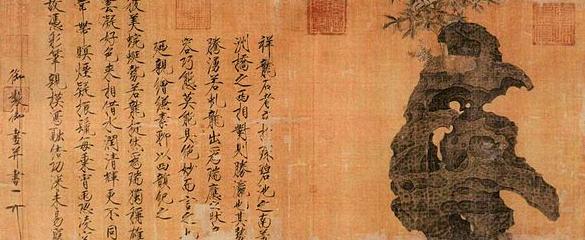 祥龍石者立於環碧池之南芳
洲橋之西相對則勝瀛也其勢
騰湧若虬龍出為瑞應之狀奇
容巧態莫能具絕妙而言之也
廼親繪縑素聊以四韻紀之
彼美蜿蜒勢若龍挺然為瑞獨稱雄
雲凝好色來相借水潤清輝更不同
常帶暝煙疑振鬣每乘宵雨恐凌
故憑彩筆親模寫融結功深未易窮
御製御畫并書